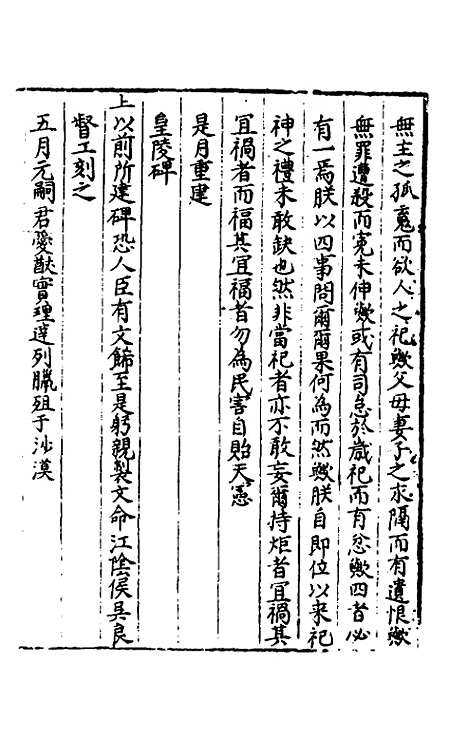 無主之孤䰟而欲人之祀歟父母妻子之永隔而有遺恨歟
無罪遭殺而寃未伸歟或有司怠於歲祀而有忿歟四者必
有一焉朕以四事問爾爾果何為而然歟朕自即位以来祀
神之禮未敢缺也然非當祀者亦不敢妄爾持炬者冝禍其
冝禍者而福其冝福者勿為民害自貽天憲
是月重建
皇陵碑
上以前所建碑恐人臣有文餙至是躬親製文命江陰侯吳良
督工刻之
五月元嗣君愛猷實理達列臘殂于沙漠